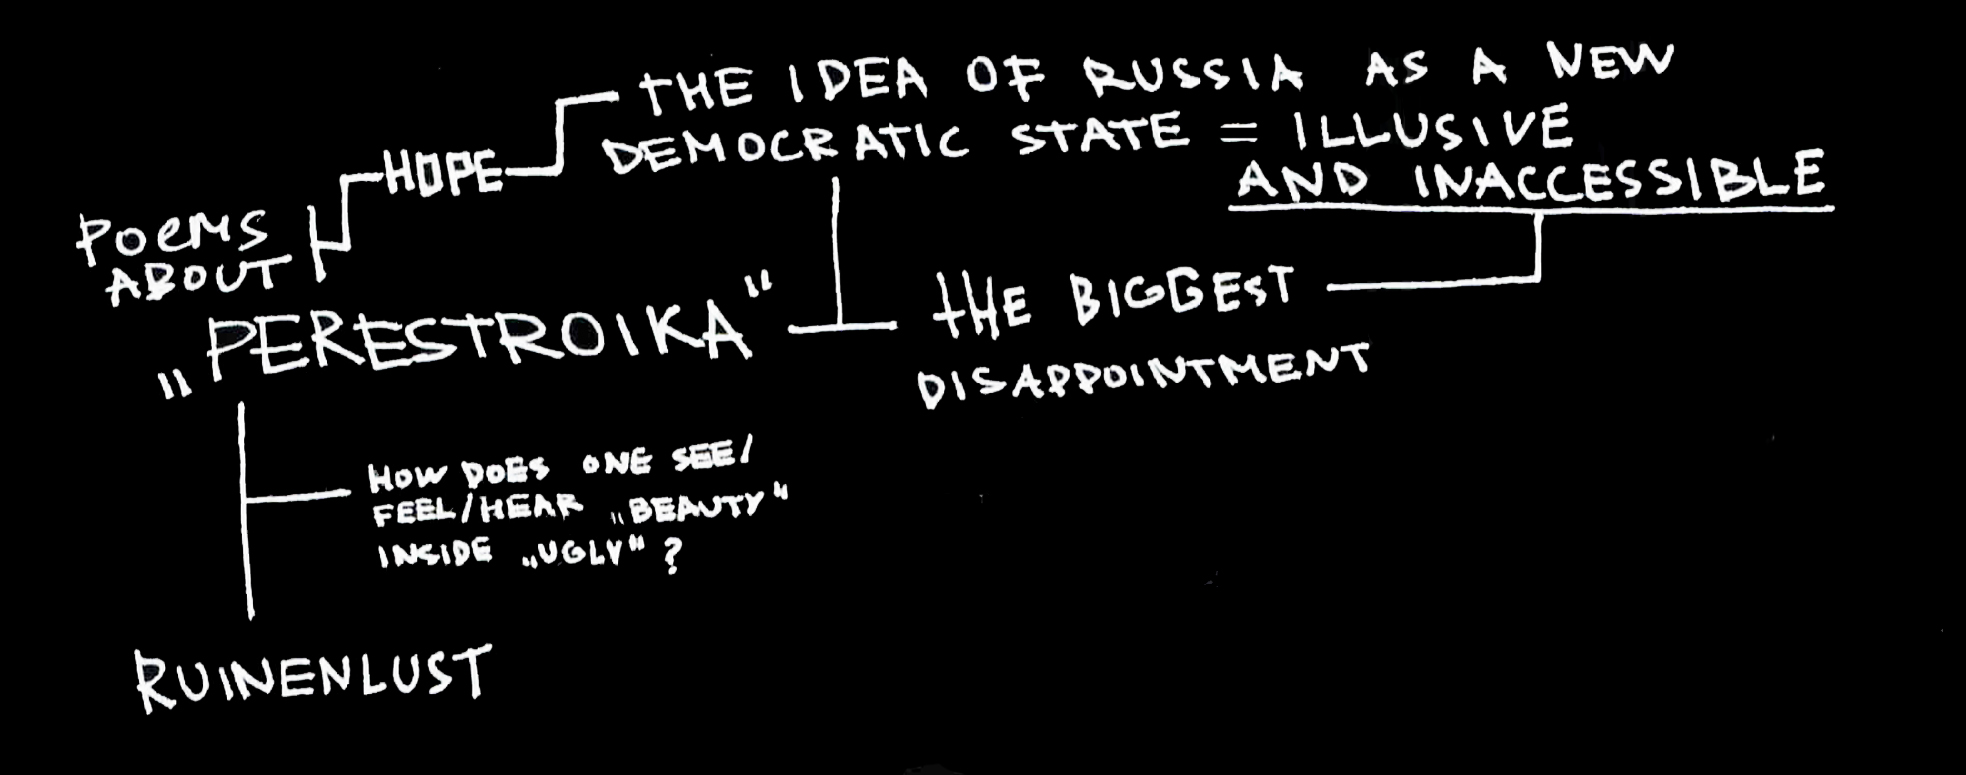 THE IDEA OF RUSSIA AS A NEW
DEMOCRATIC STATE = ILLUSIVE
AND INACCESSIBLE
HOPE
POEMS
ABOUT
„PERESTROIKA"
THE BIGGEST
DISAPPOINTMENT
HOW DOES ONE SEE/
FEEL/HEAR „BEAUTY"
INSIDE „UGLY"?
RUINENLUST